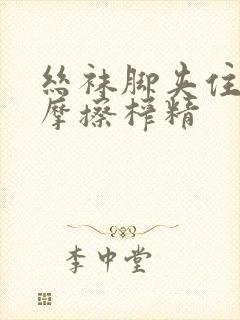 丝袜脚夹住
摩擦榨精
李中堂